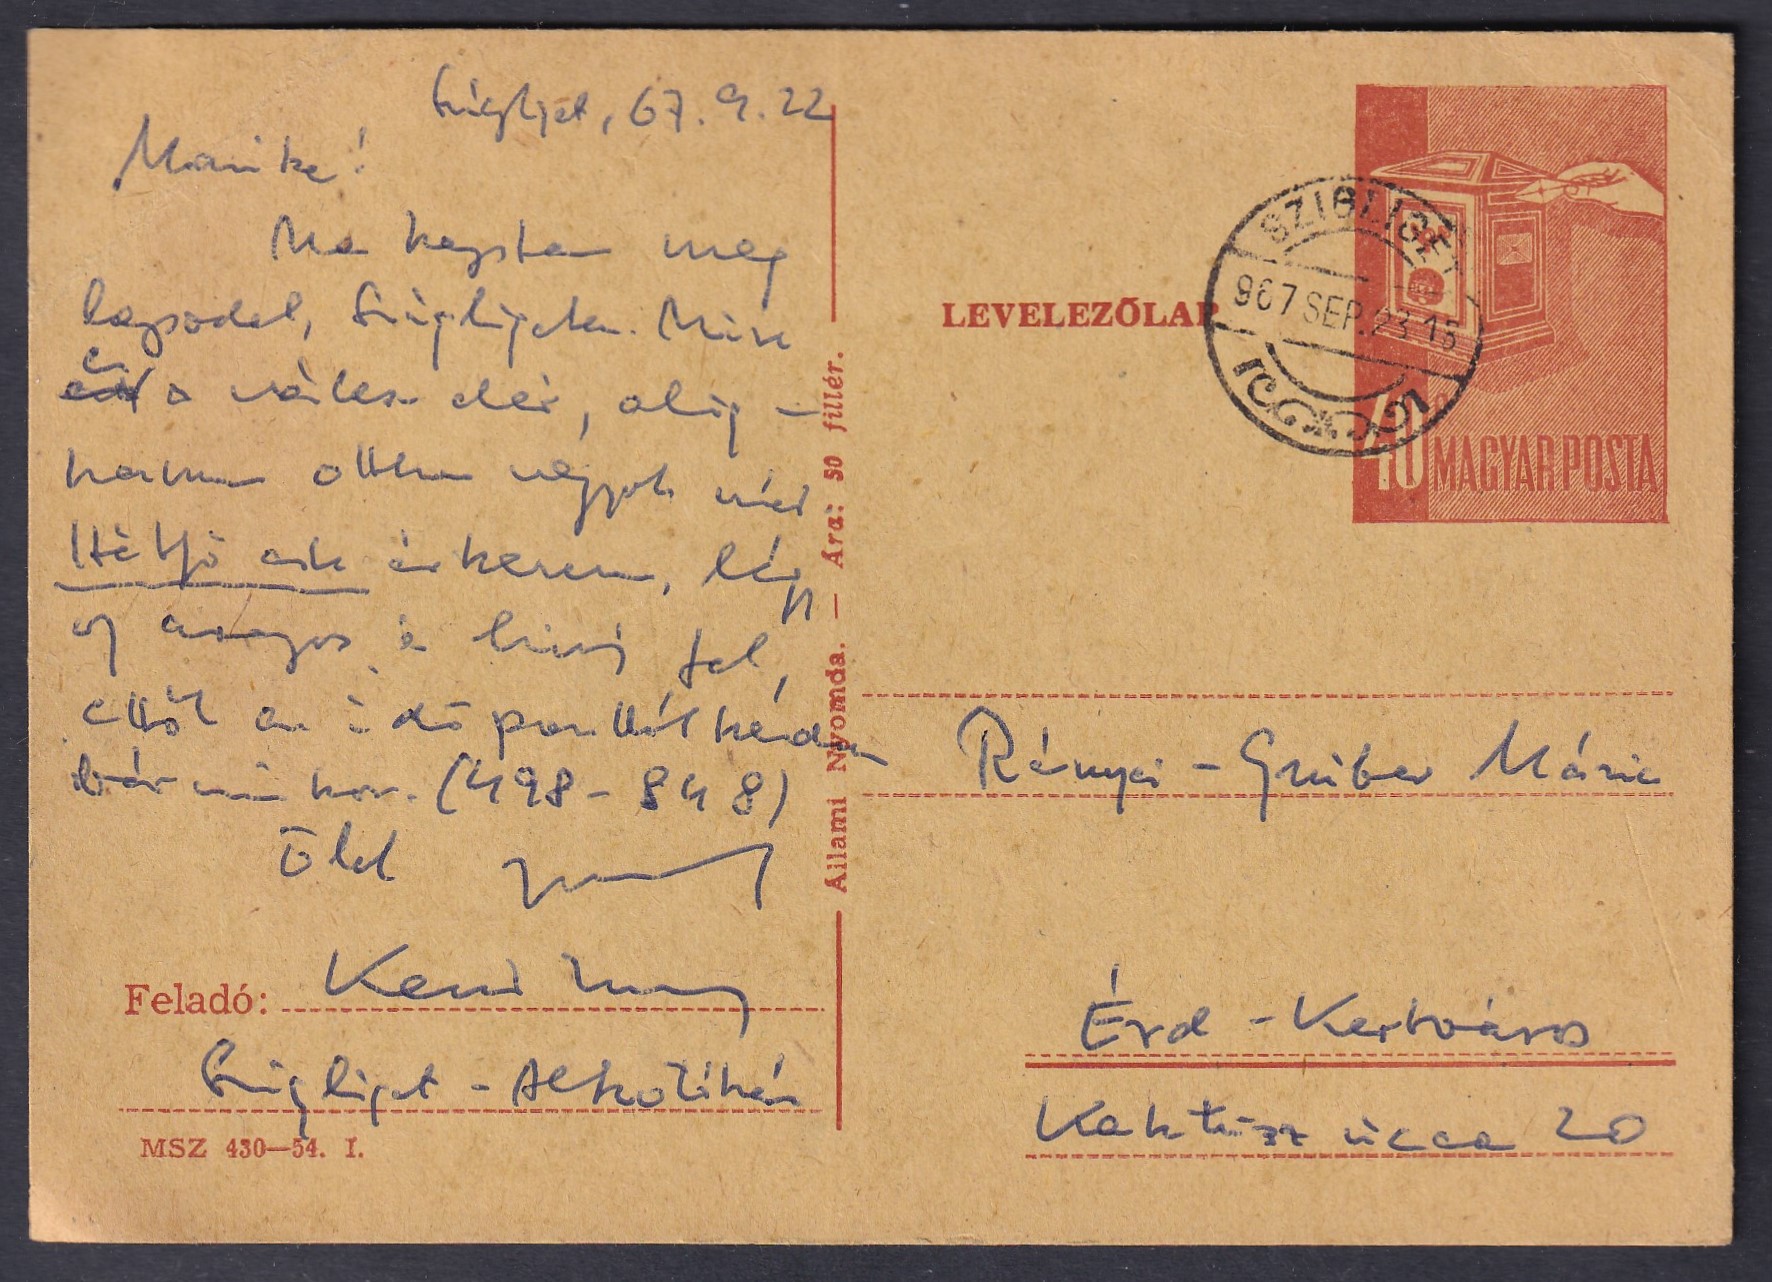 Szigliget, 67.9.22
Marika!
Ma kaptam meg
lapodat, Szigligeten. Mire
ez a válasz elér, alig-
hanem otthon vagyok már.
Hétfő este érkezem, légy
oly aranyos és hívj fel,
ettől az időponttól kezdve
bármikor. (498-848)
Ölel
Feladó:
Szigliget - Alkotóház
MSZ 430—54. I.
Állami Nyomda. — Ára: 50 fillér.
LEVELEZŐLAP
SZIGLIGET
967 SEP. 23 15
40 MAGYAR POSTA
Rényi - Gruber Mária
Érd - Kertváros
Kaktusz ucca 20